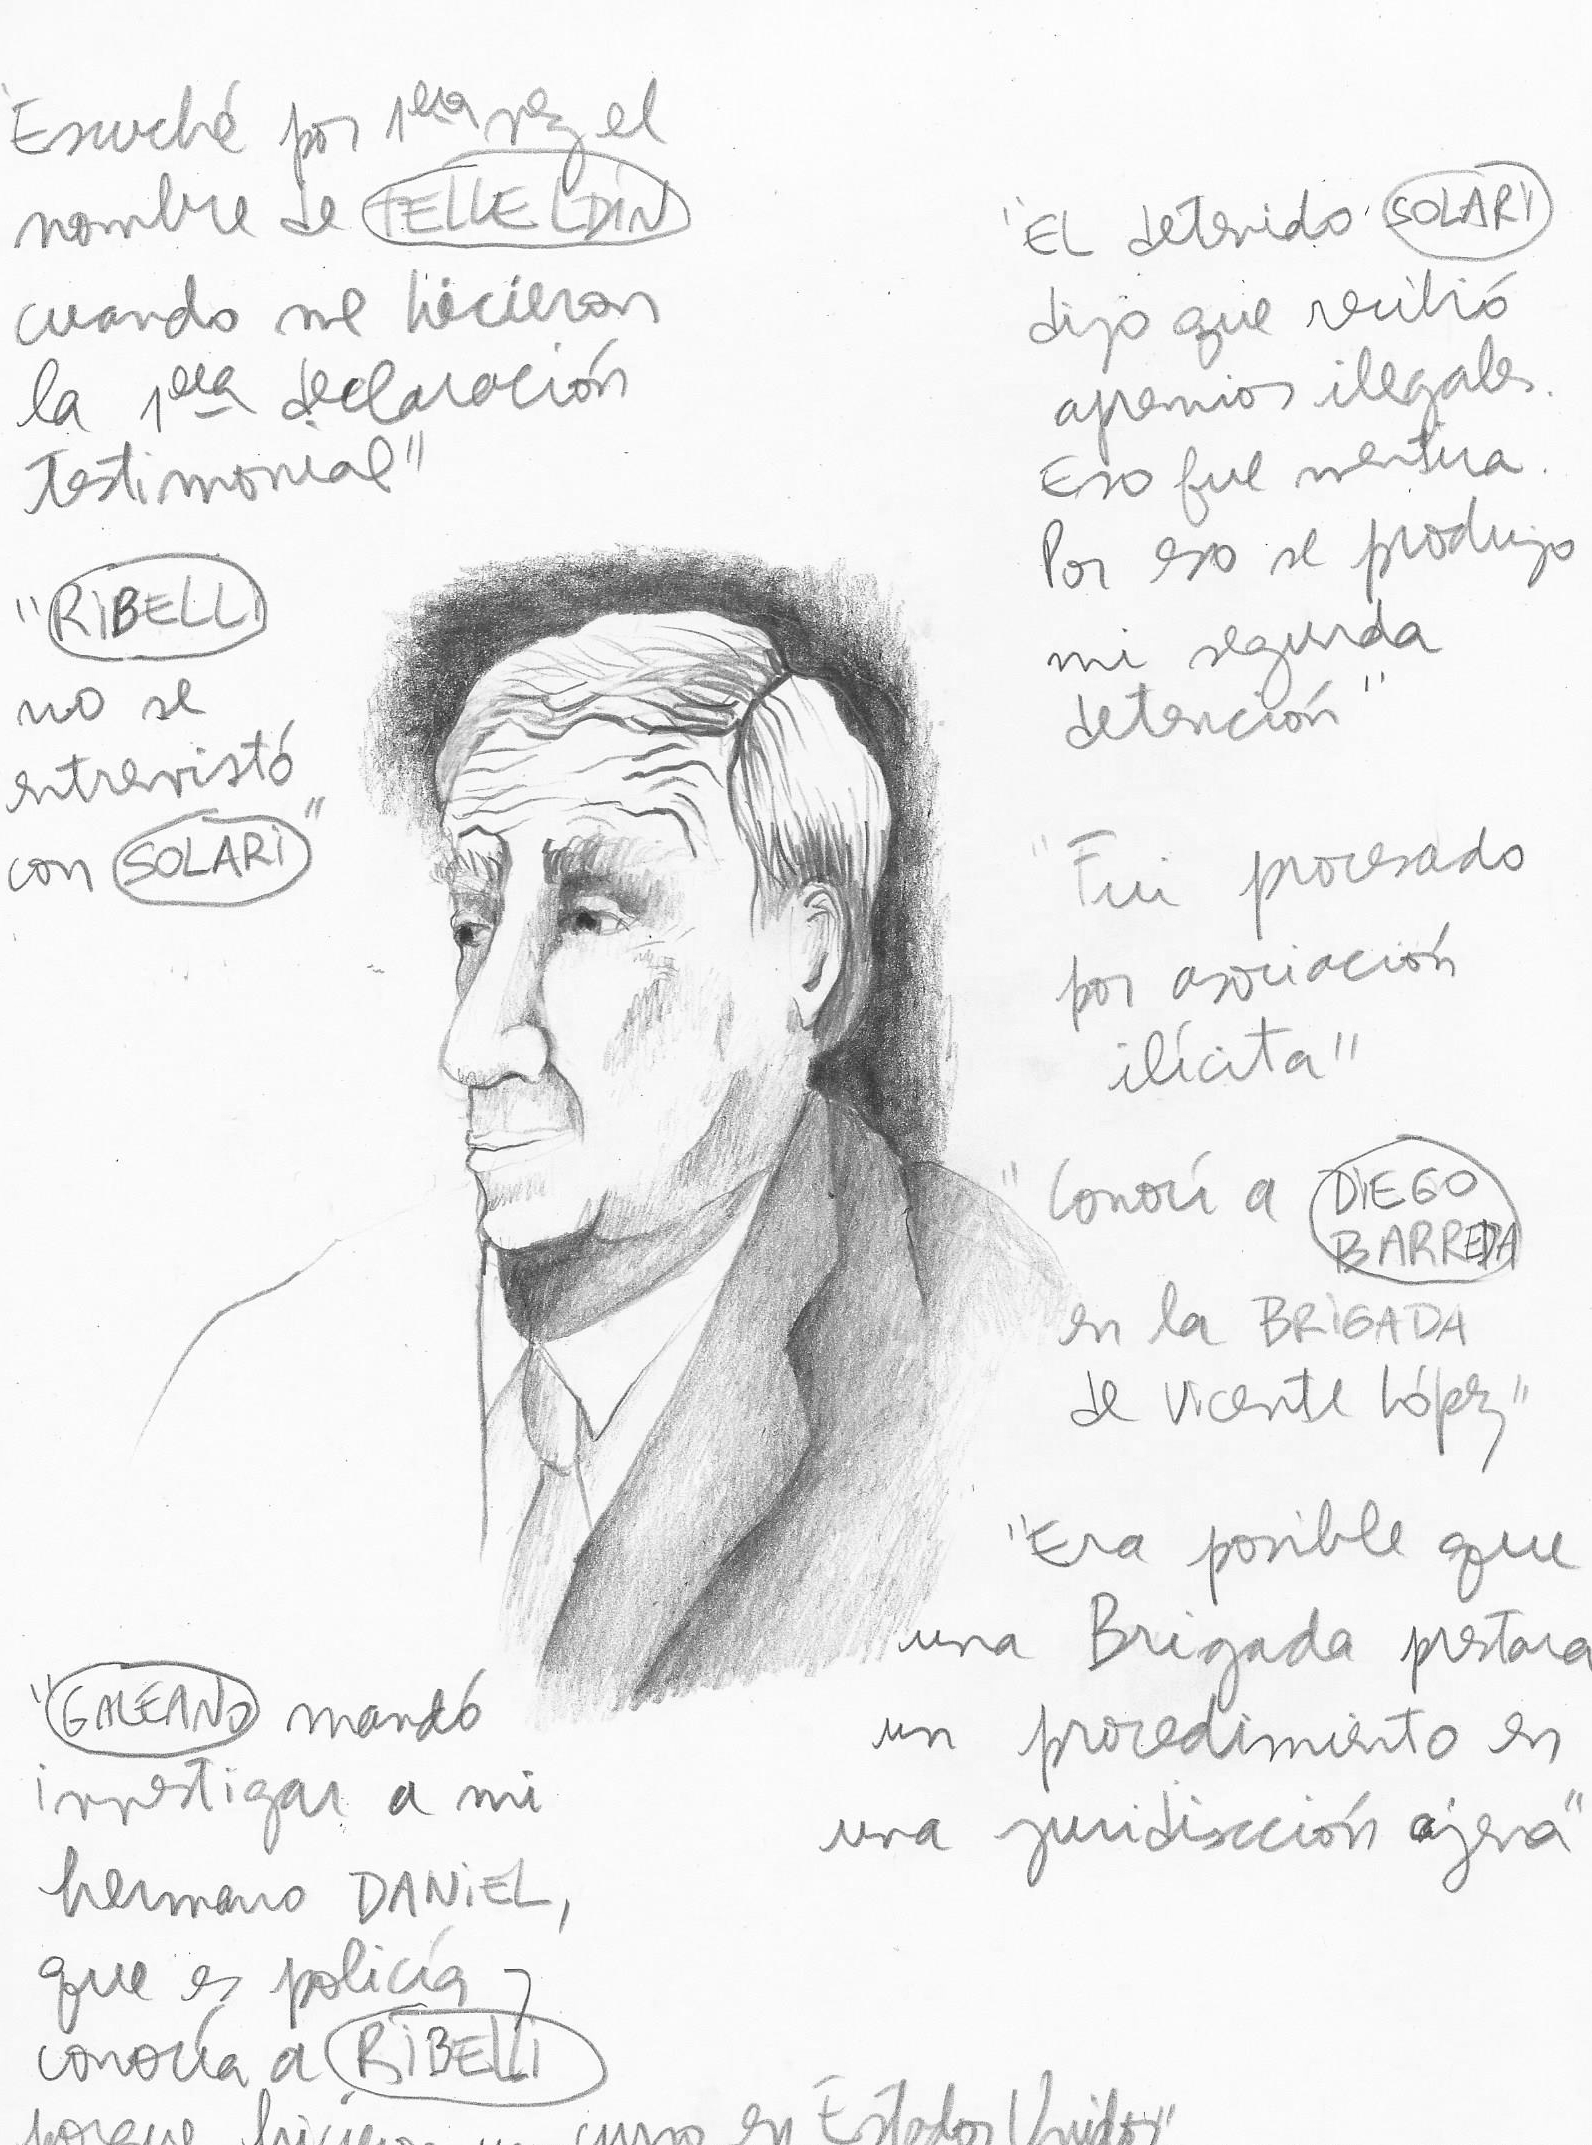 "Escuché por 1era vez el
nombre de TELLELDIN
cuando me hicieron
la 1era declaración
testimonial"
"RIBELLI
no se
entrevistó
con SOLARI"
"GALEANO mandó
investigar a mi
hermano DANIEL,
que es policía y
conocía a RIBELLI
porque hicieron un curso en Estados Unidos"
"EL detenido SOLARI
dijo que recibió
apremios ilegales.
Eso fue mentira.
Por eso se produjo
mi segunda
detención"
"Fui procesado
por asociación
ilícita"
"Conocí a DIEGO
BARREDA
en la BRIGADA
de Vicente López"
"Era posible que
una Brigada prestara
un procedimiento en
una juridiscción ajena"